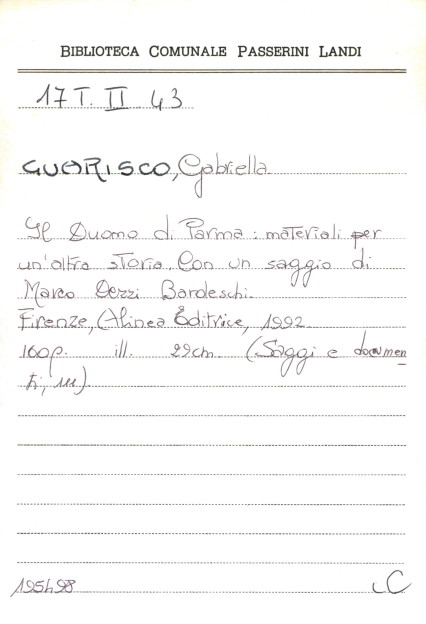 BIBLIOTECA COMUNALE PASSERINI LANDI
17 T. II 43
GUARISCO, Gabriella
Il Duomo di Parma : materiali per
un'altra storia. Con un saggio di
Marco Dezzi Bardeschi.
Firenze, (Alinea Editrice, 1992.
160p. ill. 29cm. (Saggi e documen
ti,